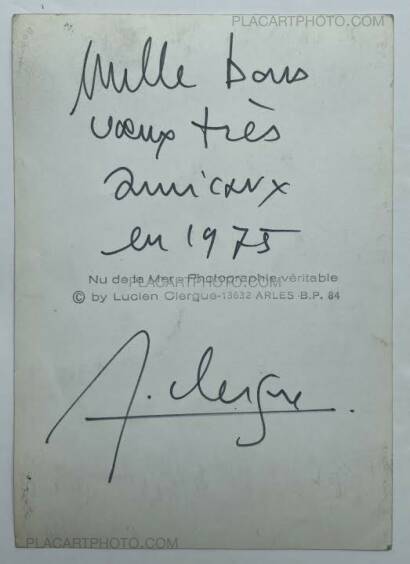 PLACARTPHOTO.COM
Mille bons
vœux très
amicaux
en 1975
Nu de la Mer - Photographie véritable
PLACARTPHOTO.COM
© by Lucien Clergue-13632 ARLES B.P. 84
. Clergue.
PLACARTPHOTO.COM